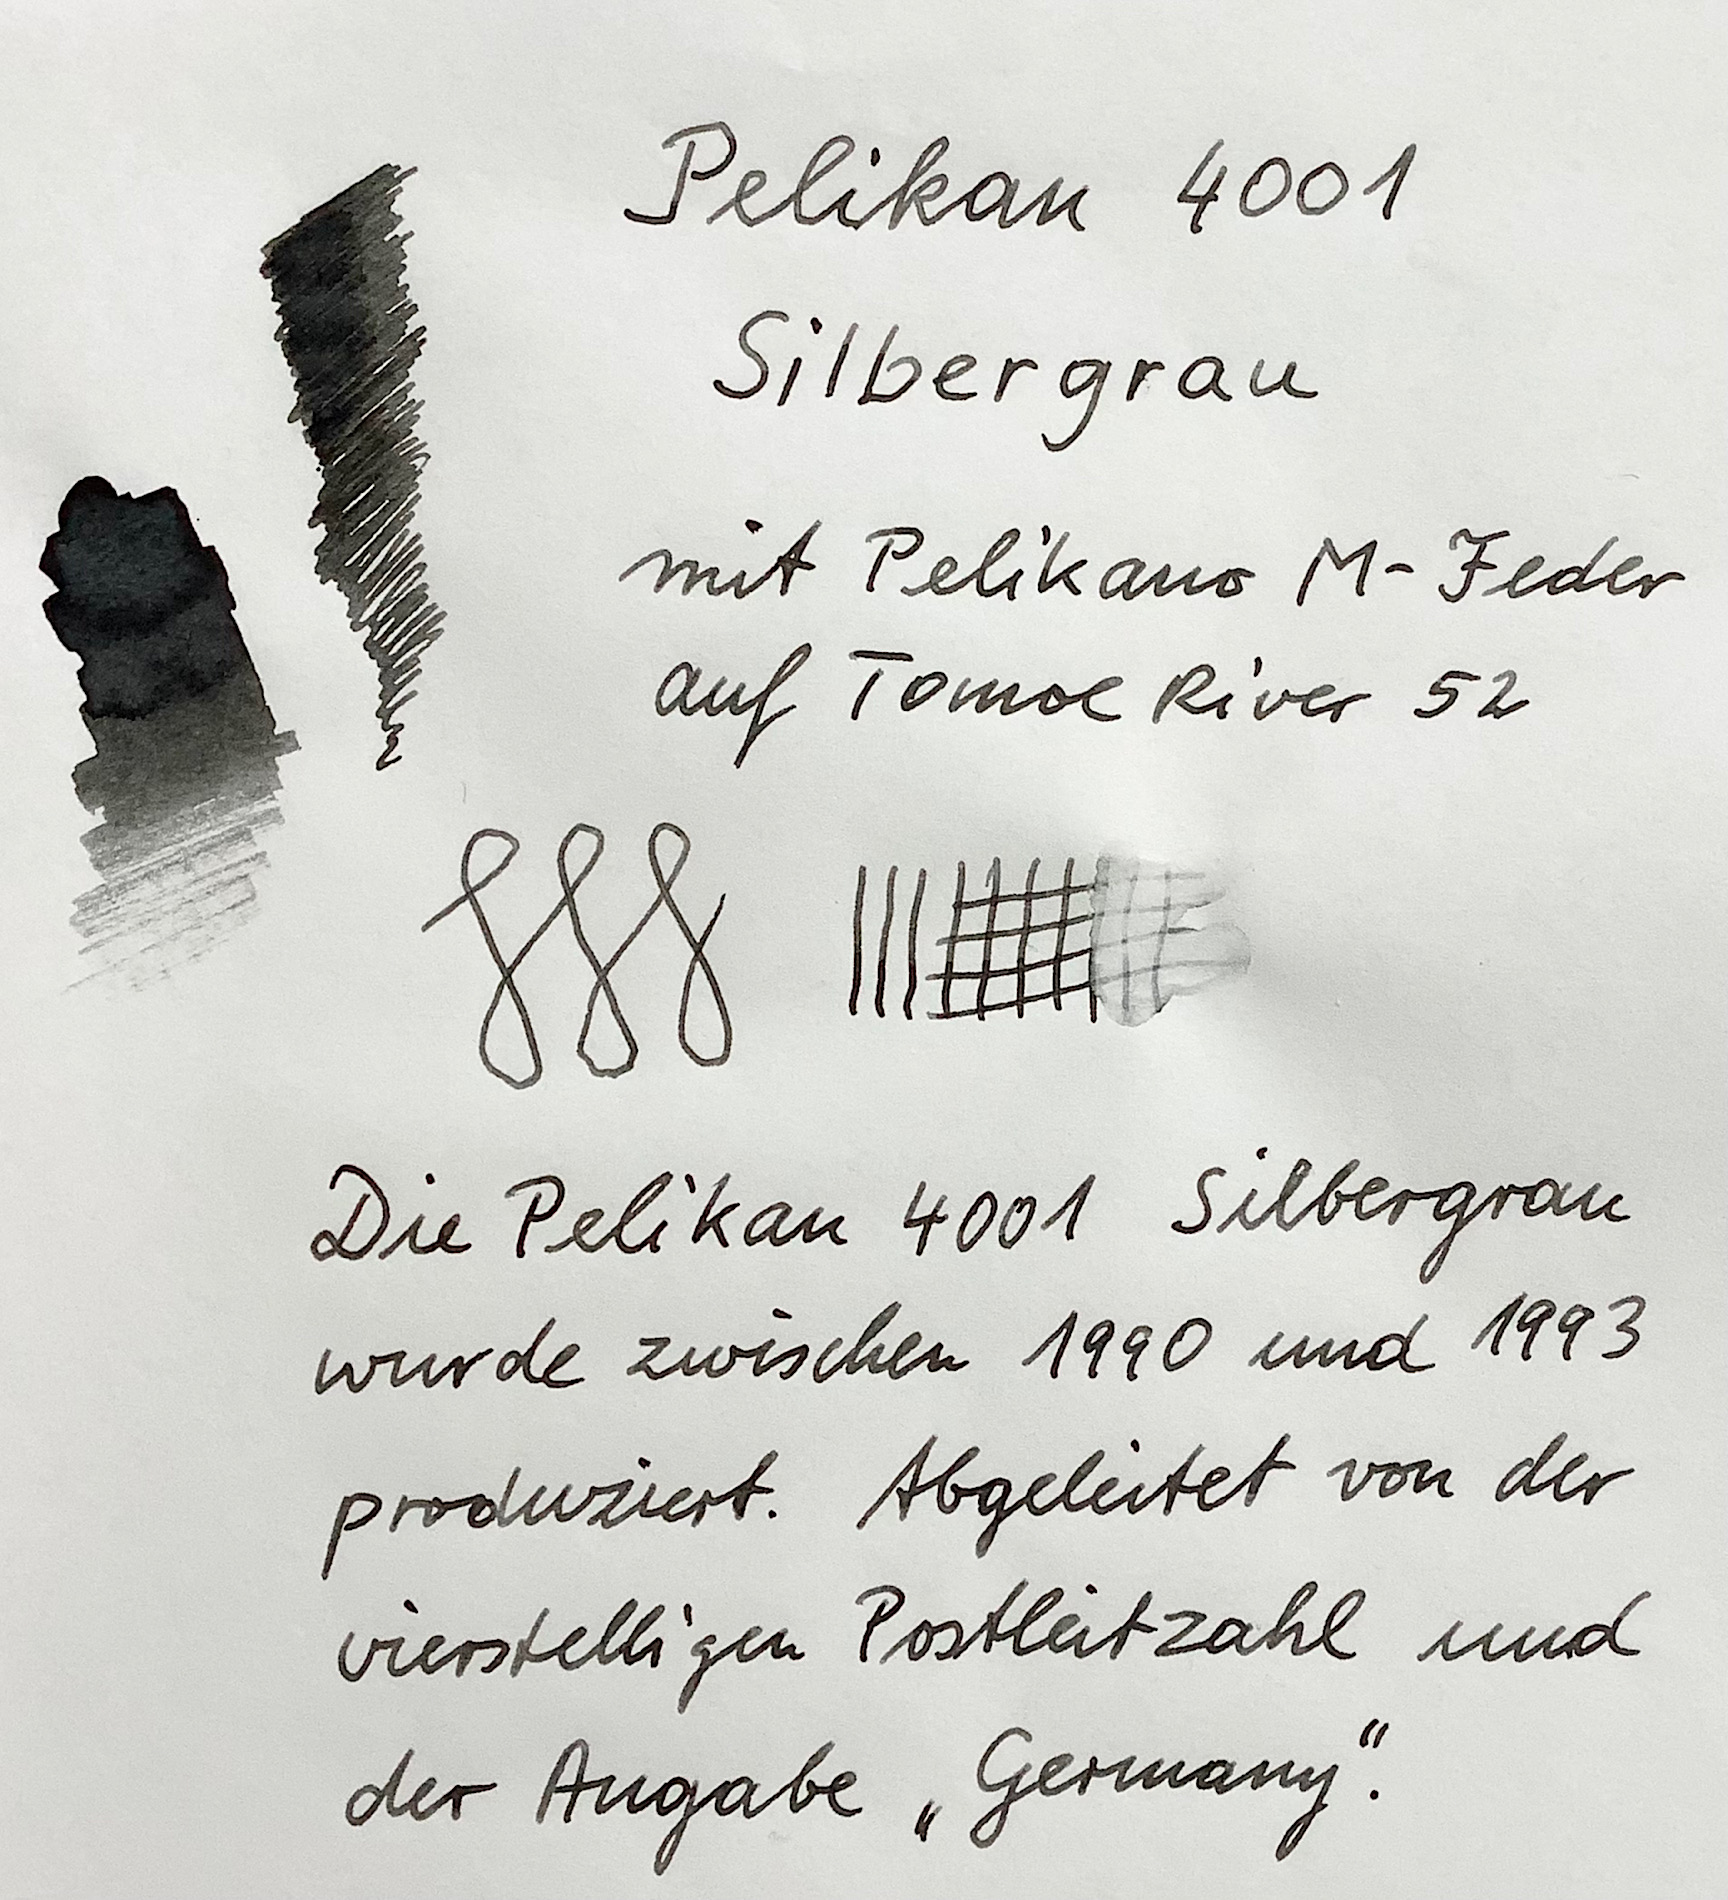 Pelikan 4001
Silbergrau
mit Pelikano M-Feder
auf Tomoe River 52
Die Pelikan 4001 Silbergrau
wurde zwischen 1990 und 1993
produziert. Abgeleitet von der
vierstelligen Postleitzahl und
der Angabe „Germany“.